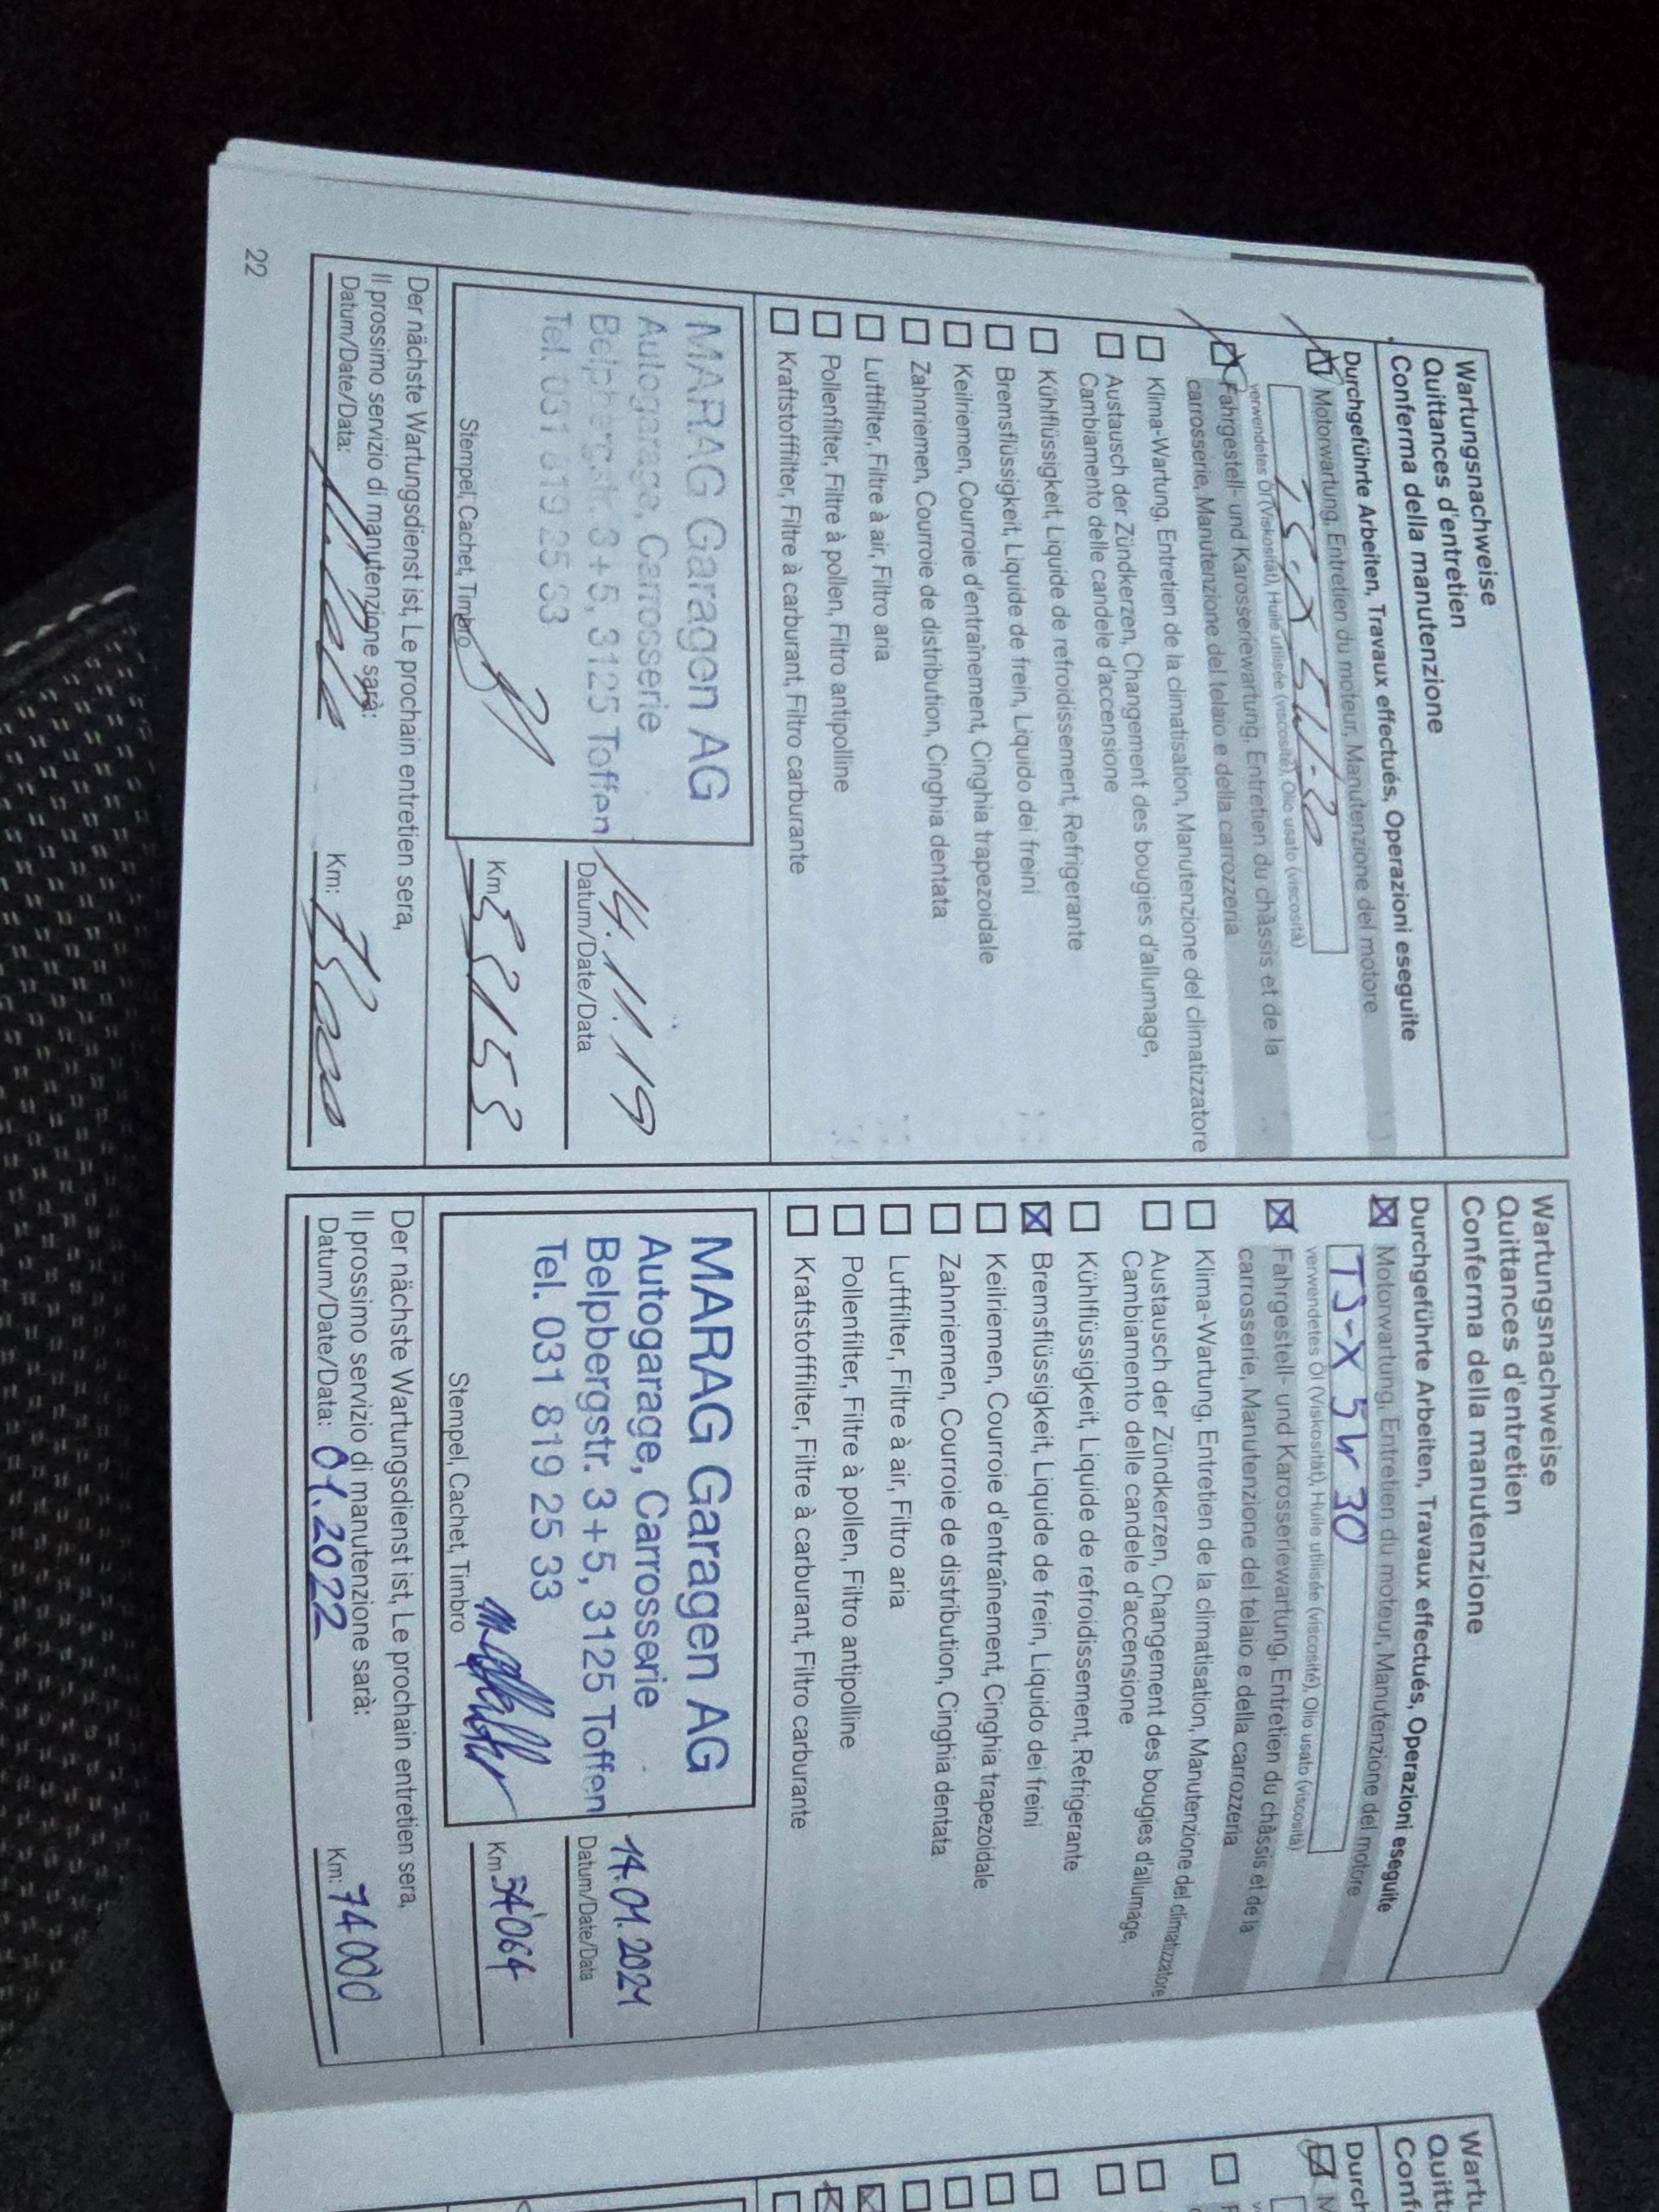 Wartungsnachweise
Quittances d'entretien
Conferma della manutenzione
Durchgeführte Arbeiten, Travaux effectués, Operazioni eseguite
Motorwartung, Entretien du moteur, Manutenzione del motore
5W-30
verwendetes Öl (Viskosität), Huile utilisée (viscosité), Olio usato (viscosità)
Fahrgestell- und Karosseriewartung, Entretien du châssis et de la
carrosserie, Manutenzione del telaio e della carrozzeria
Klima-Wartung, Entretien de la climatisation, Manutenzione del climatizzatore
Austausch der Zündkerzen, Changement des bougies d'allumage,
Cambiamento delle candele d'accensione
Kühlflüssigkeit, Liquide de refroidissement, Refrigerante
Bremsflüssigkeit, Liquide de frein, Liquido dei freini
Keilriemen, Courroie d'entraînement, Cinghia trapezoidale
Zahnriemen, Courroie de distribution, Cinghia dentata
Luftfilter, Filtre à air, Filtro aria
Pollenfilter, Filtre à pollen, Filtro antipolline
Kraftstofffilter, Filtre à carburant, Filtro carburante
MARAG Garagen AG
Autogarage, Carrosserie
Belpbergstr. 3+5, 3125 Toffen
Tel. 031 819 25 33
14.11.19
Datum/Date/Data
Stempel, Cachet, Timbro
Km
Der nächste Wartungsdienst ist, Le prochain entretien sera,
Il prossimo servizio di manutenzione sarà:
Datum/Date/Data:
Km:
22
Wartungsnachweise
Quittances d'entretien
Conferma della manutenzione
Durchgeführte Arbeiten, Travaux effectués, Operazioni eseguite
Motorwartung, Entretien du moteur, Manutenzione del motore
TS-X 5W 30
verwendetes Öl (Viskosität), Huile utilisée (viscosité), Olio usato (viscosità)
Fahrgestell- und Karosseriewartung, Entretien du châssis et de la
carrosserie, Manutenzione del telaio e della carrozzeria
Klima-Wartung, Entretien de la climatisation, Manutenzione del climatizzatore
Austausch der Zündkerzen, Changement des bougies d'allumage,
Cambiamento delle candele d'accensione
Kühlflüssigkeit, Liquide de refroidissement, Refrigerante
Bremsflüssigkeit, Liquide de frein, Liquido dei freini
Keilriemen, Courroie d'entraînement, Cinghia trapezoidale
Zahnriemen, Courroie de distribution, Cinghia dentata
Luftfilter, Filtre à air, Filtro aria
Pollenfilter, Filtre à pollen, Filtro antipolline
Kraftstofffilter, Filtre à carburant, Filtro carburante
MARAG Garagen AG
Autogarage, Carrosserie
Belpbergstr. 3+5, 3125 Toffen
Tel. 031 819 25 33
14.01.2021
Datum/Date/Data
Stempel, Cachet, Timbro
Km
Der nächste Wartungsdienst ist, Le prochain entretien sera,
Il prossimo servizio di manutenzione sarà:
Datum/Date/Data: 01.2022
Km: 74000
Wartu
Quitt
Conf
Durch